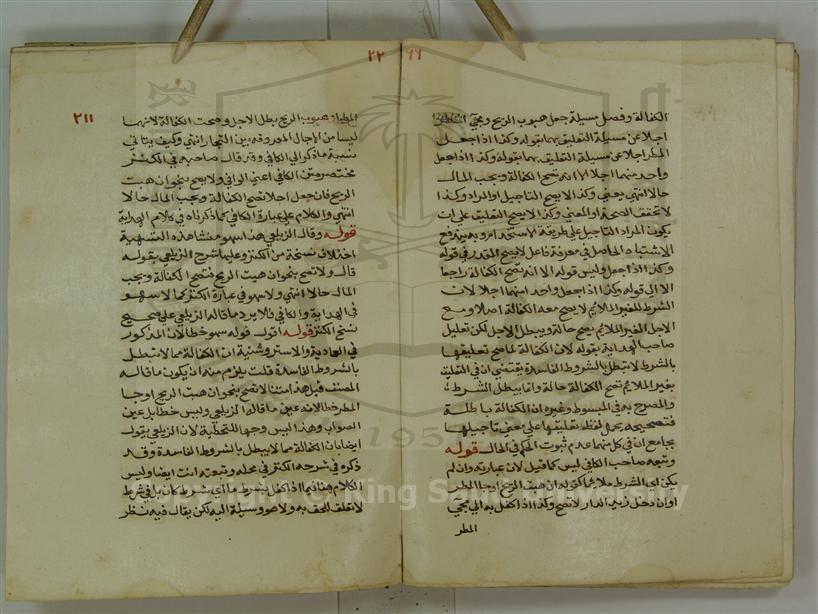 ٩٦
الكفالة وفصل مسيلة جعل هبوب الريح ومجي المطر
اجلا عن مسيلة التعليق بهما بقوله وكذا اذا جعل
المطر اجلا عن مسيلة التعليق بهما بقوله وكذا اذا جعل
واحد منهما اجلا الا انه تصح الكفالة ويجب المال
حالا انتهى يعني وكذا لا يصح التاجيل او المراد وكذا
لا تتحقق الصحة او المعنى وكذا لا يصح التعليق على ان
يكون المراد التاجيل على طريقة الاستخدام وبه يندفع
الاشتباه الحاصل في معرفة فاعل لا يصح المقدر في قوله
وكذا اذا جعل وليس قوله الا انه تصح الكفالة راجعا
الا الى قوله وكذا اذا جعل واحد منهما اجلا لان
الشرط الغير الملايم لا يصح معه الكفالة اصلا ومع
الاجل الغير الملايم تصح حالة ويبطل الاجل لكن تعليل
صاحب الهداية بقوله لان الكفالة لما صح تعليقها
بالشرط لا تبطل بالشروط الفاسدة يقتضي ان في التعليق
بغير الملايم تصح الكفالة حالة وانما يبطل الشرط
والمصرح به في المبسوط وغيره ان الكفالة باطلة
فتصحيحه بحمل لفظ تعليقها على معنى تاجيلها
بجامع ان في كل منهما عدم ثبوت الحكم في الحال قوله
وتبعه صاحب الكافي ليس كما قيل لان عبارته وان لم
يكن اي الشرط ملايما كقوله ان هبت الريح او جا المطر
او ان دخل زيد الدار لا تصح وكذا اذا كفل به الى مجي
المطر
٢٢
٢١١
المطر او هبوب الريح بطل الاجل وصحت الكفالة لانهما
ليسا من الاجال المعروفة بين التجار انتهى وكيف يتاتى
نسبة ما ذكر الى الكافي وقد قال صاحبه في الكنز
مختصر متن الكافي اعني الوافي ولا يصح بنحو ان هبت
الريح فان جعل اجلا تصح الكفالة ويجب المال حالا
انتهى والكلام على عبارة الكافي كما ذكرناه في كلام الهداية
قوله وقال الزيلعي هذا سهو منشا هذه الشبهة
اختلاف نسخة من الكنز وعليها شرح الزيلعي بقوله
قال ولا تصح بنحو ان هبت الريح فتصح الكفالة ويجب
المال حالا انتهى ولا سهو في عبارة الكنز كما لا سهو
في الهداية والكافي فلا يرد ما قاله الزيلعي على صحيح
نسخ الكنز قوله اقول قوله سهو خطا لان المذكور
في العمادية والاستروشنية ان الكفالة مما لا تبطل
بالشروط الفاسدة قلت يلزم منه ان يكون ما قاله
المصنف قبل هذا متنا لا تصح بنحو ان هبت الريح او جا
المطر خطا لانه عين ما قاله الزيلعي وليس خطا بل عين
الصواب وهذا ليس وجها للتخطية لان الزيلعي يقول
ايضا بان الكفالة مما لا يبطل بالشروط الفاسدة وقد
ذكره في شرحه الكنز في محله وتبعته انت ايضا وليس
الكلام هنا فيما اذا كفل بشرط ما اي شرط كان بل في شرط
لا تعلق للحق به ولا هو وسيلة اليه لكن يقال فيه نظر
Copyright © King Saud University
1957